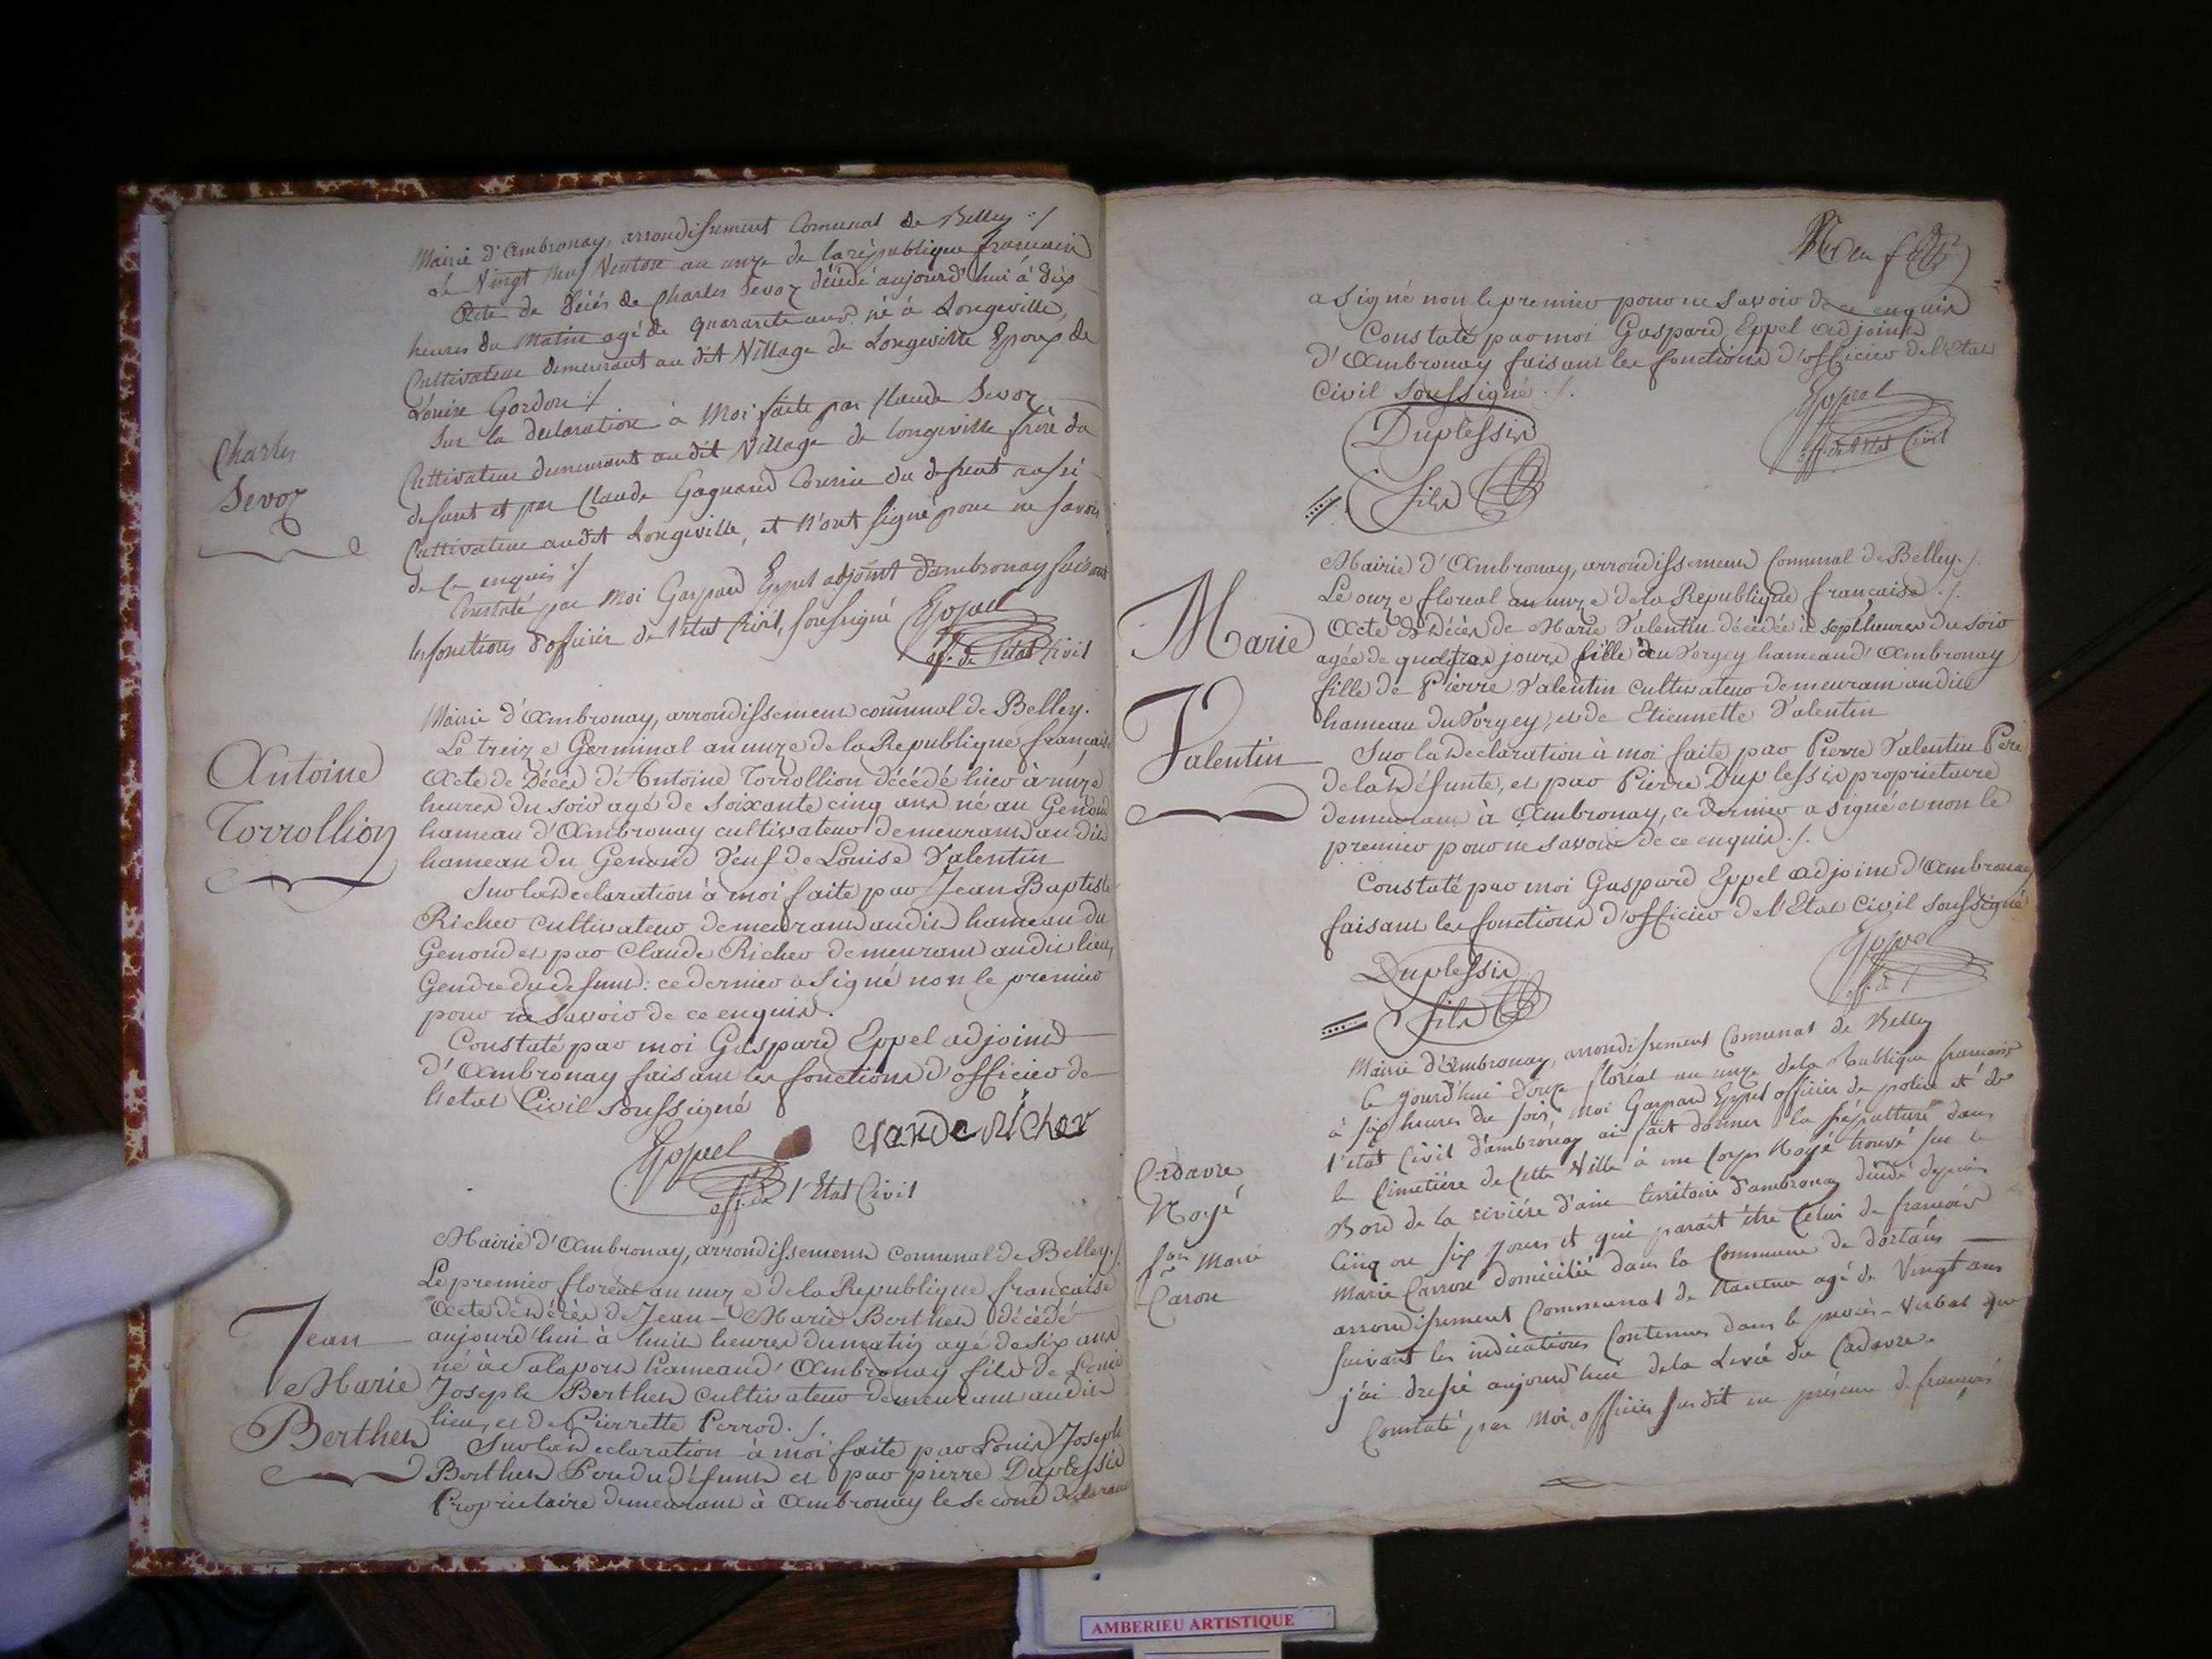 Mairie d'Ambronay, arrondissement Comunal de Belley :/
Le Vingt Neuf Ventose an onze de la république francaise
Acte de Décés de Charles Devoz décédé aujourd'hui à dix
heures du Matin agé de quarante ans né à Longeville,
Cultivateur demeurant au dit Village de Longeville Epoux de
Louise Gordon :/
Sur la declaration à Moi faite par Claude Devoz
Cultivateur demeurant au dit Village de longeville frère du
defunt et par Claude Gagnand Cousin du defunt aussi
Cultivateur au dit Longeville, et N'ont signé pour ne savoir
de ce enquis :/
Constaté par Moi Gaspard Eppel adjoint d'ambronay faisant
les fonctions d'officier de l'état Civil, soussigné Eppel
off. de l'état Civil
Charles
Devoz
Mairie d'Ambronay, arrondissement comunal de Belley.
Le treize Germinal an onze de la Republique francaise
Acte de Décès d'Antoine Torrollion décédé hier à onze
heures du soir agé de soixante cinq ans né au Genoud
hameau d'Ambronay cultivateur demeurant au dit
hameau du Genoud Veuf de Louise Valentin
Sur la declaration à moi faite par Jean Baptiste
Richer cultivateur demeurant audit hameau du
Genoud et par Claude Richer demeurant audit lieu,
Gendre du defunt : ce dernier a signé non le premier
pour ne savoir de ce enquis.
Constaté par moi Gaspard Eppel adjoint
d'Ambronay faisant les fonctions d'officier de
l'etat Civil soussigné
Antoine
Torrollion
Eppel claude Richer
off. de l'Etat Civil
Mairie d'Ambronay, arrondissement comunal de Belley. /
Le premier floréal an onze de la Republique française
Acte de décès de Jean-Marie Berthet décédé
aujourd'hui à huit heures du matin agé de six ans
né à Salapora hameau d'Ambronay fils de Louis
Joseph Berthet cultivateur demeurant audit
lieu, et de Pierrette Perrod. /.
Sur la declaration à moi faite par Louis Joseph
Berthet Pere du défunt et par pierre Duplessis
Proprietaire demeurant à Ambronay le second declarant
Jean
Marie
Berthet
Neuf
a signé non le premier pour ne savoir de ce enquis
Constaté par moi Gaspard Eppel Adjoint
d'Ambronay faisant les fonctions d'officier de l'Etat
Civil soussigné ./.
Duplessis Eppel
fils off. de l'Etat Civil
Mairie d'Ambronay, arrondissement Comunal de Belley. /.
Le onze floreal an onze de la Republique française ./.
Acte de Décès de Marie Valentin décédée à sept heures du soir
agée de quatre jours fille du Vorgey hameau d'Ambronay
fille de Pierre Valentin cultivateur demeurant audit
hameau du Vorgey, et de Etiennette Valentin
Sur la declaration à moi faite par Pierre Valentin Pere
de la défunte, et par Pierre Duplessis proprietaire
demeurant à Ambronay, ce dernier a signé et non le
premier pour ne savoir de ce enquis ./.
Constaté par moi Gaspard Eppel adjoint d'Ambronay
faisant les fonctions d'officier de l'Etat Civil soussigné
Marie
Valentin
Duplessis Eppel
fils off. de
Mairie d'Ambronay, arrondissement Comunal de Belley
Ce jourd'hui Douze floréal an onze de la Republique francaise
à six heures du soir, Moi Gaspard Eppel officier de police et de
l'état Civil d'ambronay ai fait donner la sépulture dans
le Cimetière de Cette Ville à un Corps Noyé trouvé sur le
Bord de la rivière d'ain territoire d'ambronay décédé depuis
Cinq ou six jours et qui parait être Celui de francois
Marie Carron domicilié dans la Commune de dortans
arrondissement Communal de Nantua agé de Vingt ans
suivant les indications Contenues dans le procès-verbal que
j'ai dressé aujourd'hui de la Levée du Cadavre.
Constaté par Moi officier susdit en présence de francois
Cadavre
Noyé
fois Marie
Caron
AMBERIEU ARTISTIQUE